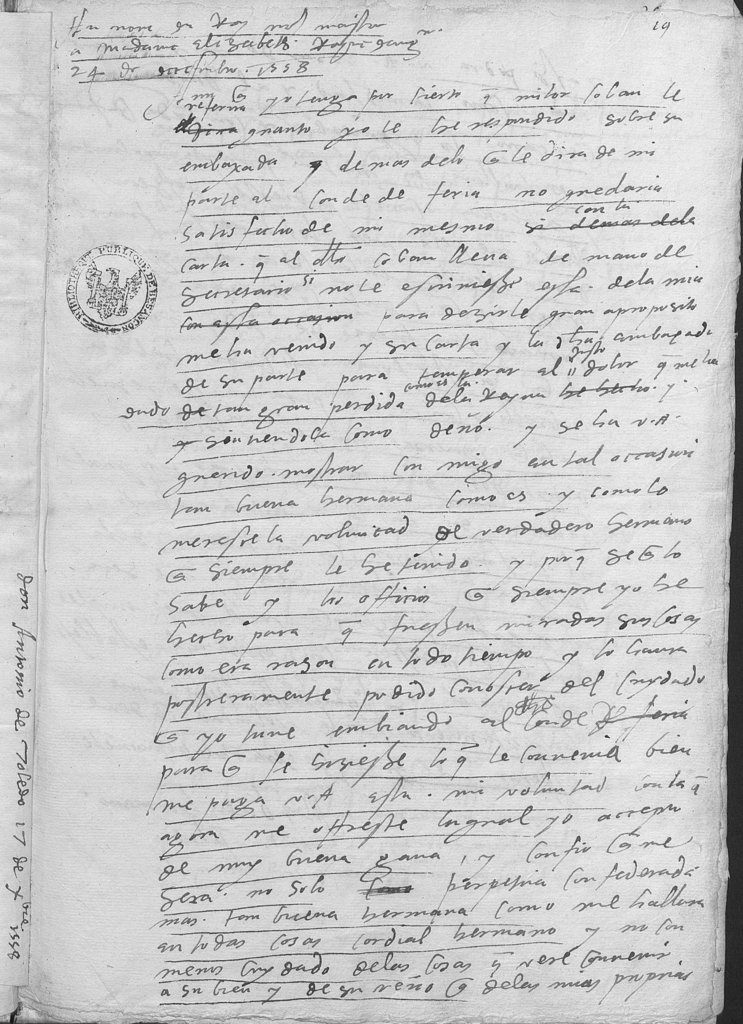 19
a madama Elizabeth
24 de decembre. 1558
yo tengo por cierto q milor Coban le
referira quanto yo le he respondido sobre su
embaxada y demas delo q le dira de mi
parte al conde de feria no quedaria
satisfecho de mi mesmo si demas dela con la
carta. q al dho Coban lleva de mano de
secretario si no le escriviesse esta. dela mia
con esta occasion para dezirle quan a proposito
me ha venido y su carta y la otra embaxada
de su parte para temperar al justo dolor q me ha
dado de tan gran perdida como es la dela Reyna he hecho. y
sintiendola como devo. y se ha V.A.
querido. mostrar con migo en tal occasion
tan buena hermana como es. y como lo
meresce la voluntad de verdadero hermano
q siempre le he tenido. y porq se q lo
sabe y los officios q siempre yo he
hecho para q fuessen miradas sus cosas
como era razon en todo tiempo y lo havra
postreramente podido conoscer del cuydado
q yo tuve embiando al conde de feria
para q se hiziesse lo q le convenia bien
me paga V.A esta. mi voluntad con la q
agora me offresce la qual yo accepto
de muy buena gana, y confio q me
sera. no solo como perpetua confederada
mas. tan buena hermana como me hallara
en todas cosas cordial hermano y no con
menos cuydado delas cosas q vere convenir
a su bien y de su reño q delas mias proprias
BIBLIOTHEQUE PUBLIQUE DE BESANÇON
don Antonio de Toledo 17 de xbre 1558